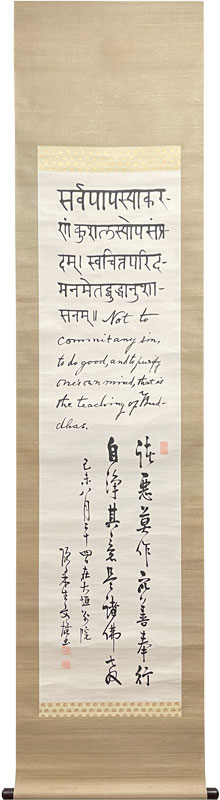 सर्वपापस्याकर-
णं कुशलस्योपसंप-
दम्। स्वचित्तपरिद-
मनमेतद्बुद्धानुशा-
सनम्॥ Not to
commit any sin,
to do good, and to purify
one's own mind, that is
the teaching of Bud-
dhas.
諸惡莫作衆善奉行
自淨其意是諸佛教
己未八月二十四日在大垣別院
碩果生文雄書